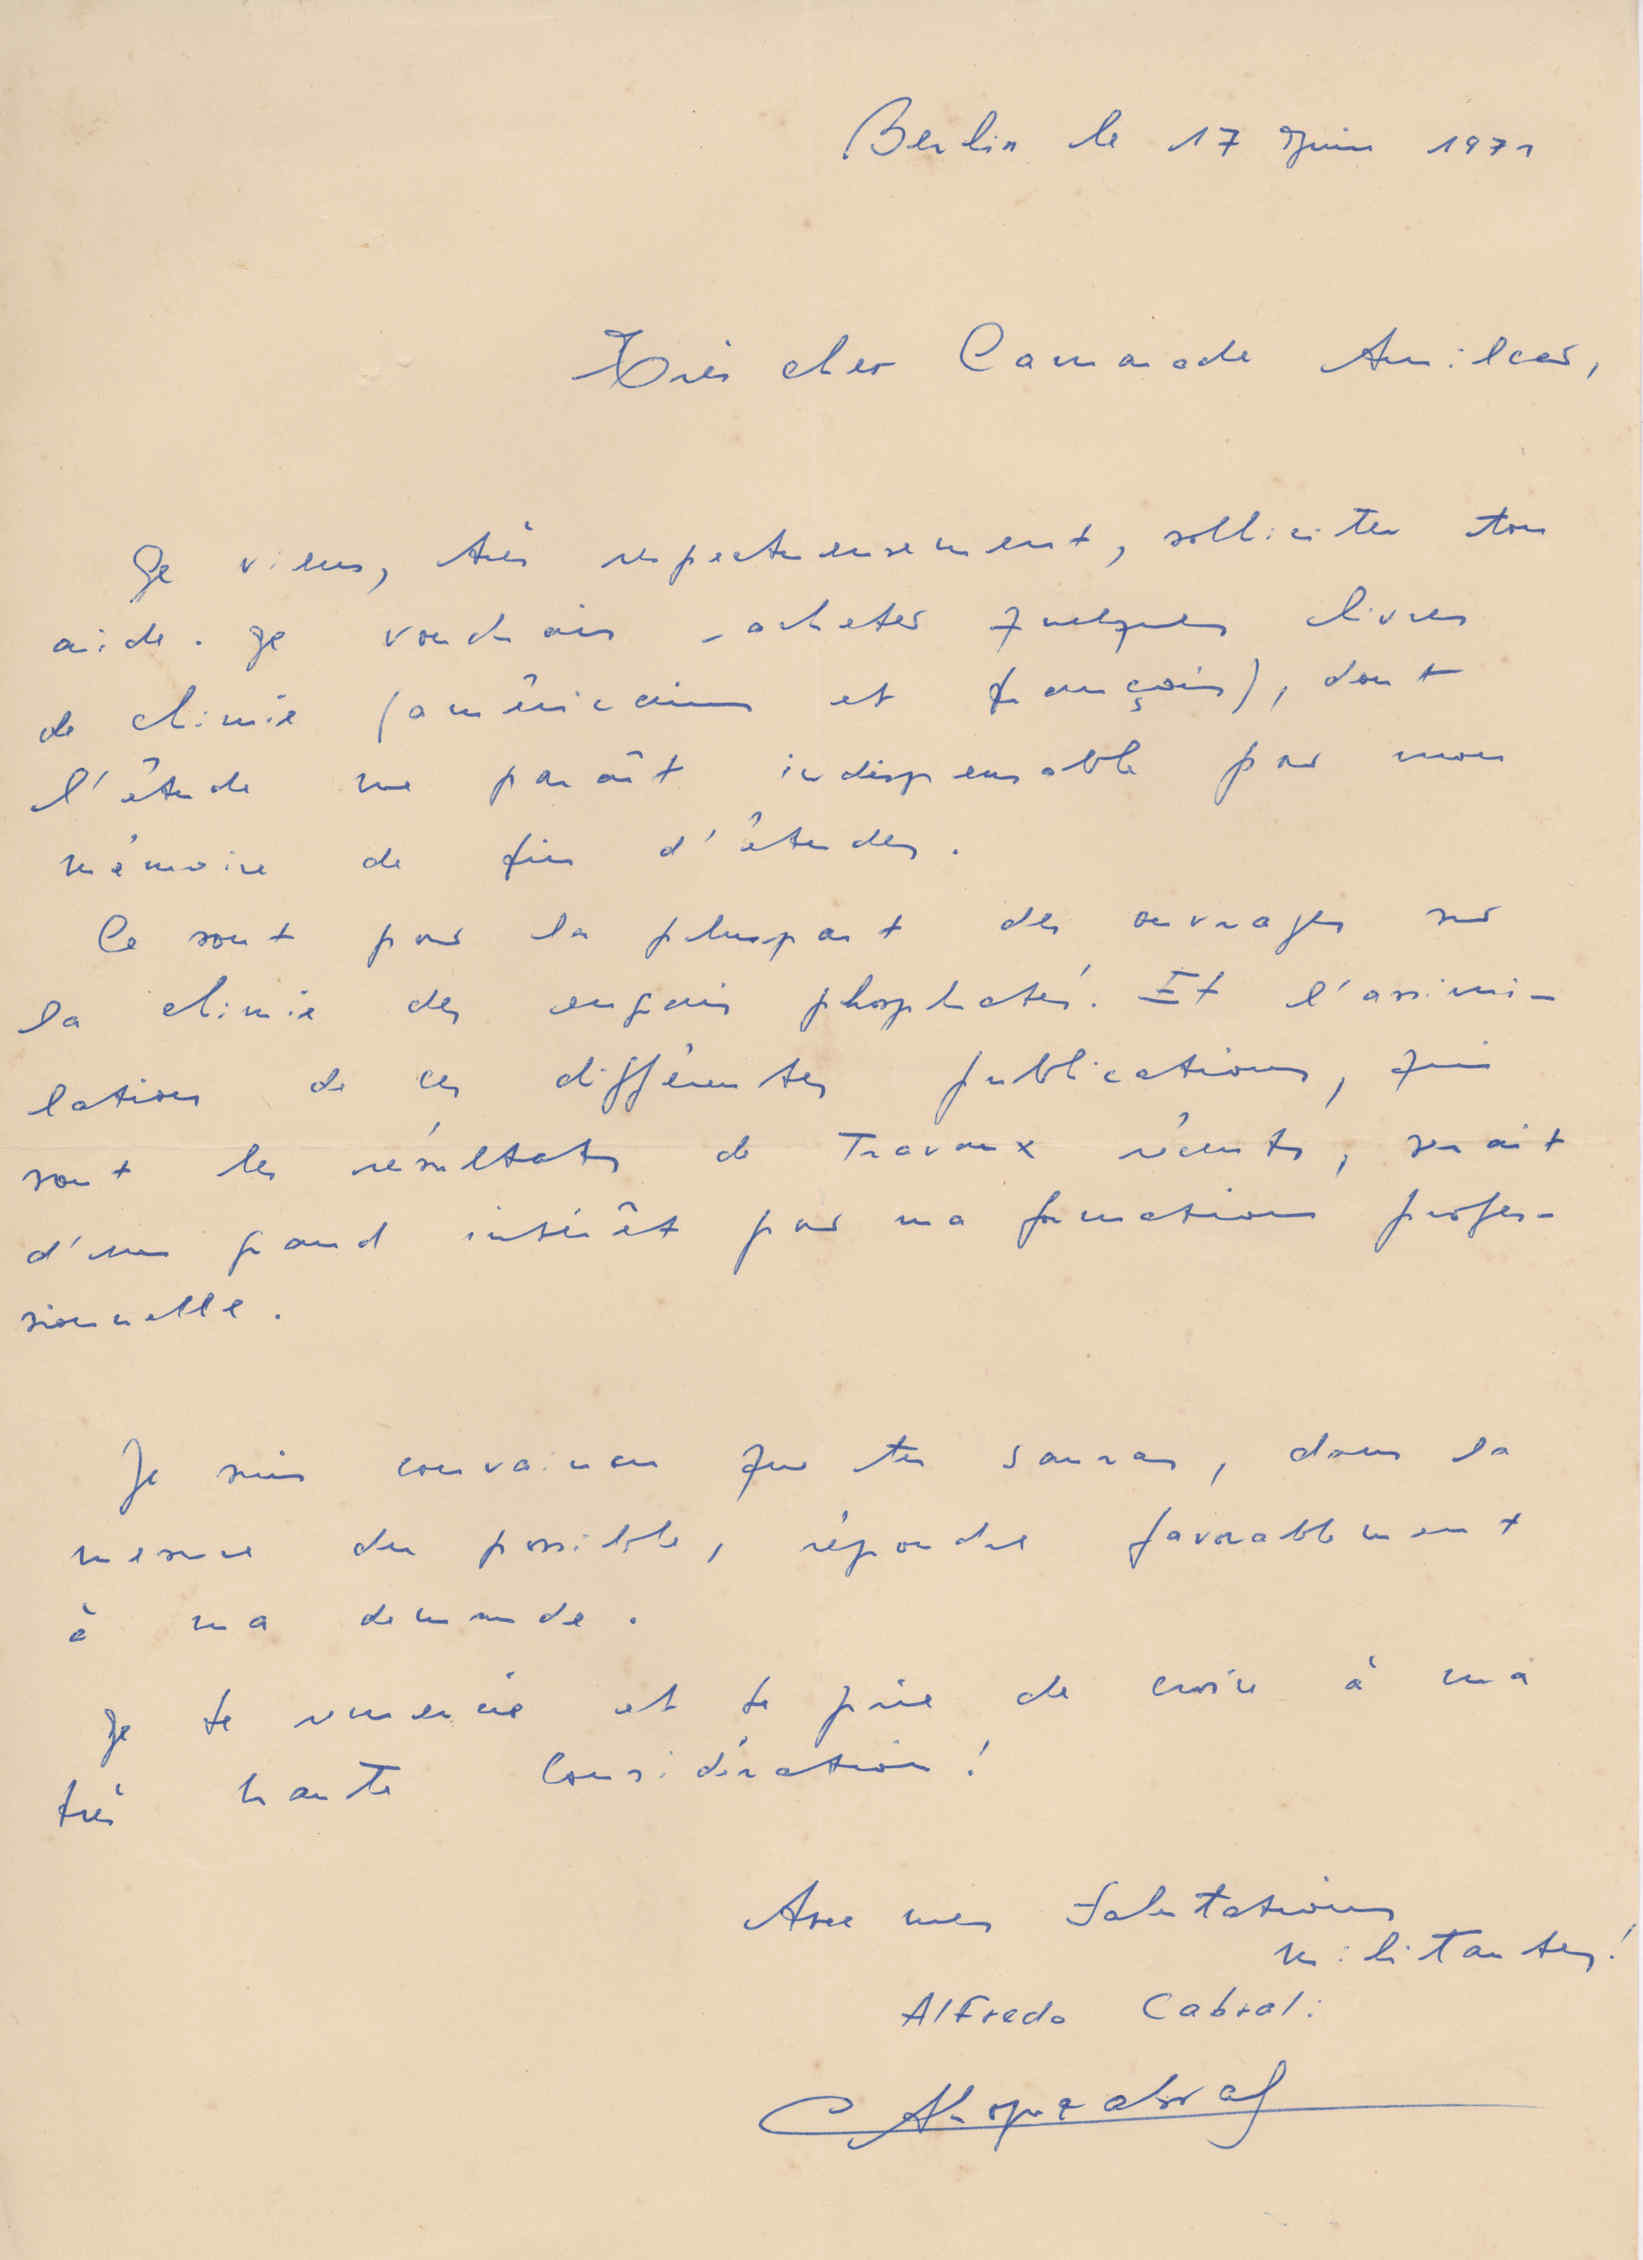 Berlin le 17 Juin 1971
Très cher Camarade Amilcar,
Je viens, très respectueusement, solliciter ton
aide. Je voudrais acheter quelques livres
de chimie (américains et français), dont
l'étude me paraît indispensable pour mon
mémoire de fin d'études.
Ce sont pour la pluspart des ouvrages sur
la chimie des engrais phosphatés. Et l'assimi-
lation de ces différentes publications, qui
sont les résultats de Travaux récents, serait
d'un grand intérêt pour ma formation profes-
sionnelle.
Je suis convaincu que tu sauras, dans la
mesure du possible, répondre favorablement
à ma demande.
Je te remercie et te prie de croire à ma
très haute Considération!
Avec mes Salutations
militantes!
Alfredo Cabral: